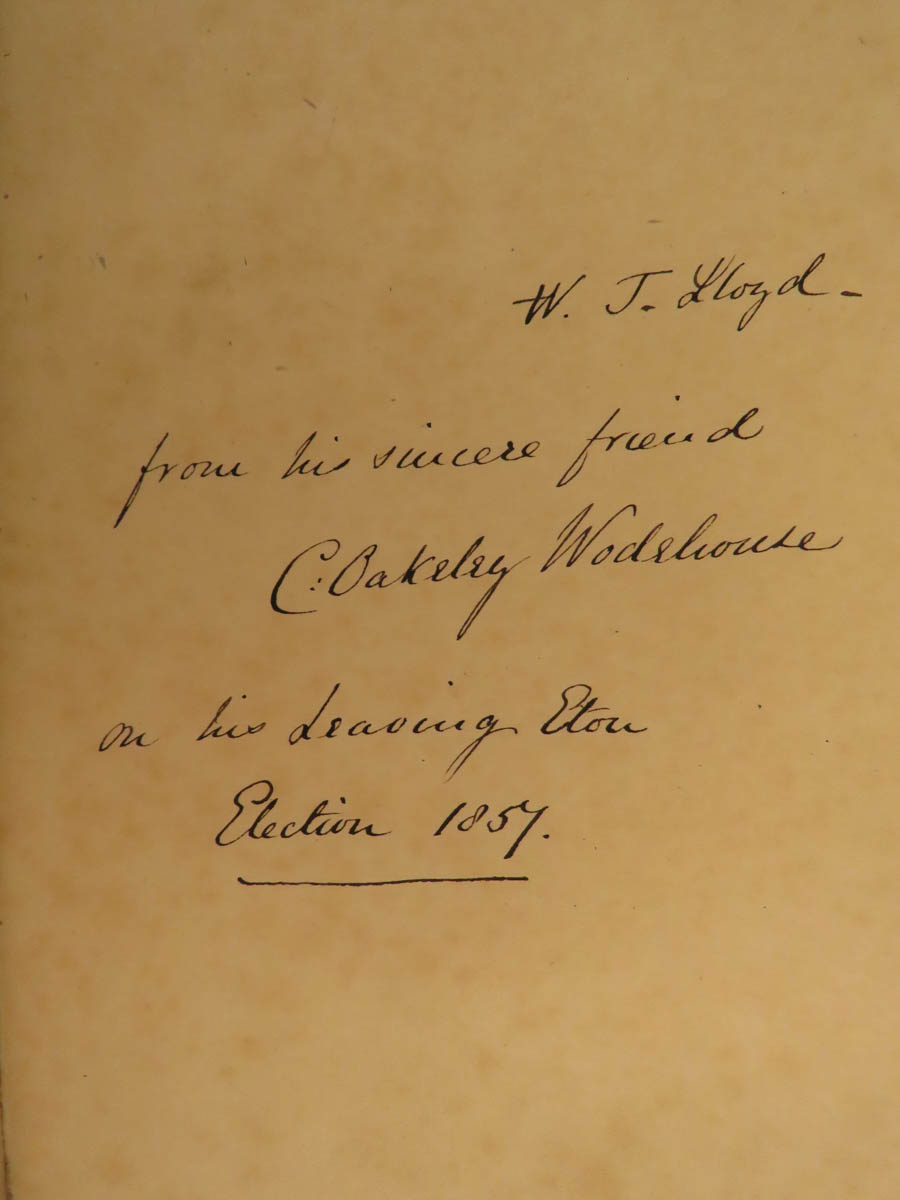 W. T. Lloyd -
from his sincere friend
C: Oakeley Wodehouse
on his Leaving Eton
Election 1857.